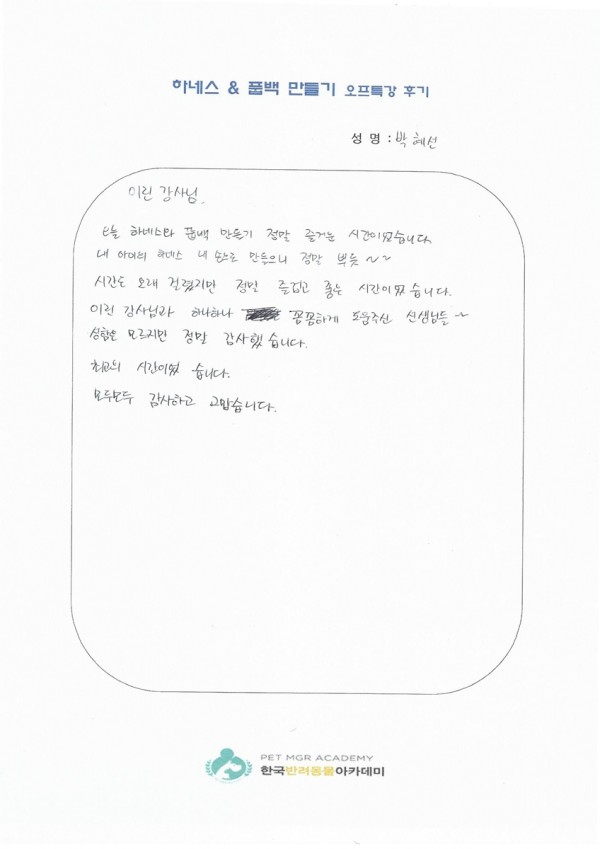 하네스 & 풉백 만들기 오프특강 후기
성 명 : 박혜선
이린 강사님.
오늘 하네스와 풉백 만들기 정말 즐거운 시간이었습니다.
내 아이의 하네스 내 손으로 만드니 정말 뿌듯~~
시간도 오래 걸렸지만 정말 즐겁고 좋은 시간이었습니다.
이린 강사님과 하나하나 꼼꼼하게 도움주신 선생님들~
성함은 모르지만 정말 감사했습니다.
최고의 시간이였습니다.
모두모두 감사하고 고맙습니다.
PET MGR ACADEMY
한국반려동물아카데미